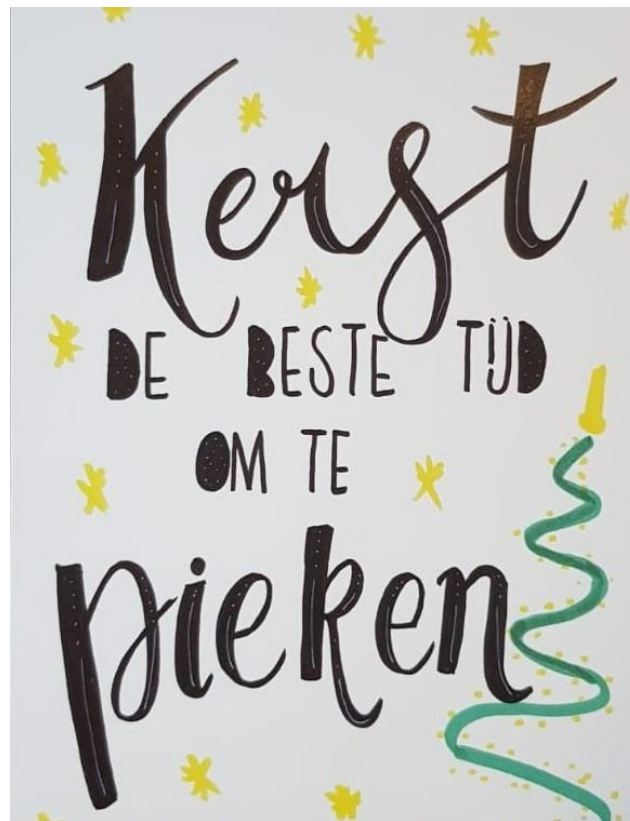 Kerst
DE BESTE TIJD
OM TE
pieken